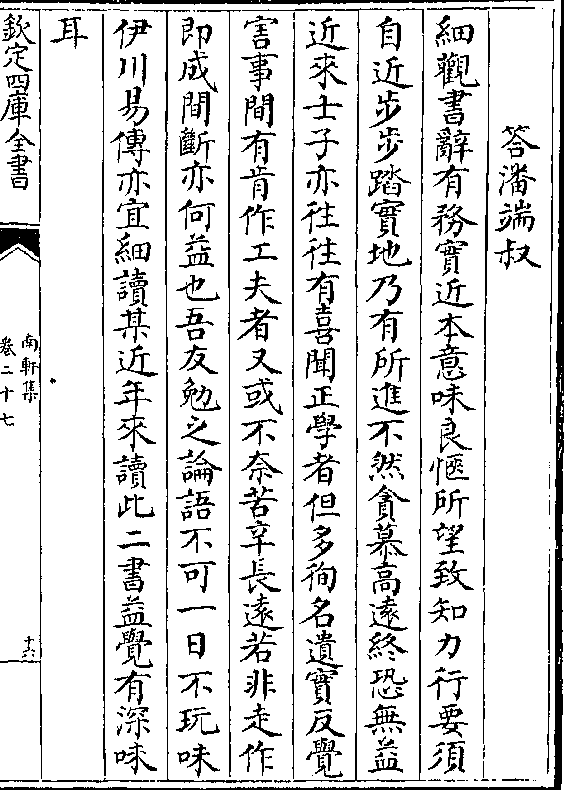 答潘端叔
細觀書辭有務實近本意味良愜所望致知力行要須
自近步步踏實地乃有所進不然貪慕高遠終恐無益
近來士子亦往往有喜聞正學者但多徇名遺實反覺
害事間有肯作工夫者又或不奈苦辛長遠若非走作
即成間斷亦何益也吾友勉之論語不可一日不玩味
伊川易傳亦宜細讀某近年來讀此二書益覺有深味
耳
欽定四庫全書
南軒集
卷二十七
十六